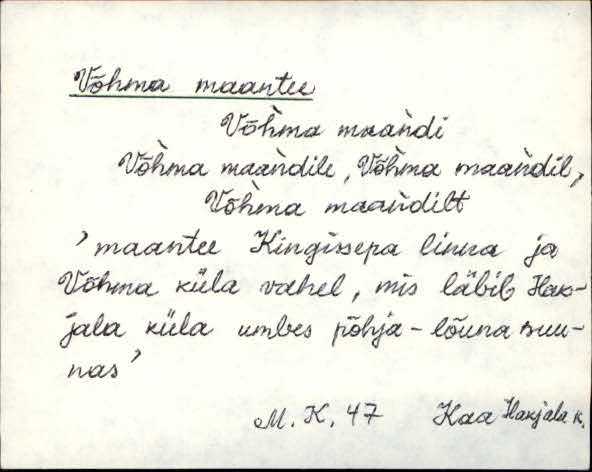 Võhma maantee
Võh̀ma maàndi
Võh̀ma maàndile, Võh̀ma maàndil,
Võh̀ma maàndilt
'maantee Kingissepa linna ja
Võhma küla vahel, mis läbib Hak-
jala küla umbes põhja-lõuna suu-
nas'
M. K. 47 Kaa Hakjala k.